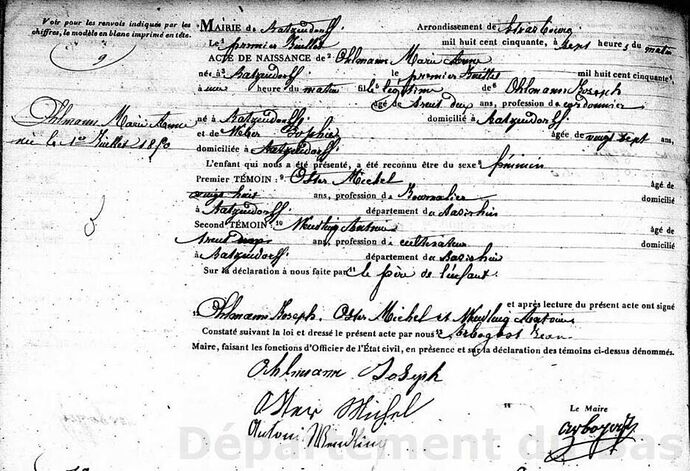 Voir pour les renvois indiqués par les
chiffres, le modèle en blanc imprimé en tête.
9
Ohlmann Marie Anne
née le 1er Juillet 1850
MAIRIE de Batzendorff Arrondissement de Strasbourg
Le premier Juillet mil huit cent cinquante, à sept heures du matin
ACTE DE NAISSANCE de Ohlmann Marie Anne
née à Batzendorff le premier Juillet mil huit cent cinquante
à une heure du matin fille légitime de Ohlmann Joseph
âgé de trente deux ans, profession de cordonnier
né à Batzendorff domicilié à Batzendorff
et de Weber Sophie âgée de vingt sept ans,
domiciliée à Batzendorff
L'enfant qui nous a été présenté, a été reconnu être du sexe féminin
Premier TÉMOIN : Oster Michel âgé de
vingt huit ans, profession de Journalier domicilié
à Batzendorff département du Bas rhin
Second TÉMOIN : 10 Wendling Antoine âgé de
trente ans, profession de cultivateur domicilié
à Batzendorff département du Bas rhin
Sur la déclaration à nous faite par 11 le père de l'enfant
et après lecture du présent acte ont signé
Ohlmann Joseph, Oster Michel et Wendling Antoine
Constaté suivant la loi et dressé le présent acte par nous Arbogast Jean
Maire, faisant les fonctions d'Officier de l'État civil, en présence et sur la déclaration des témoins ci-dessus dénommés.
Ohlmann Joseph
Oster Michel
Antoni Wendling
Le Maire
arbogast
Département du Bas